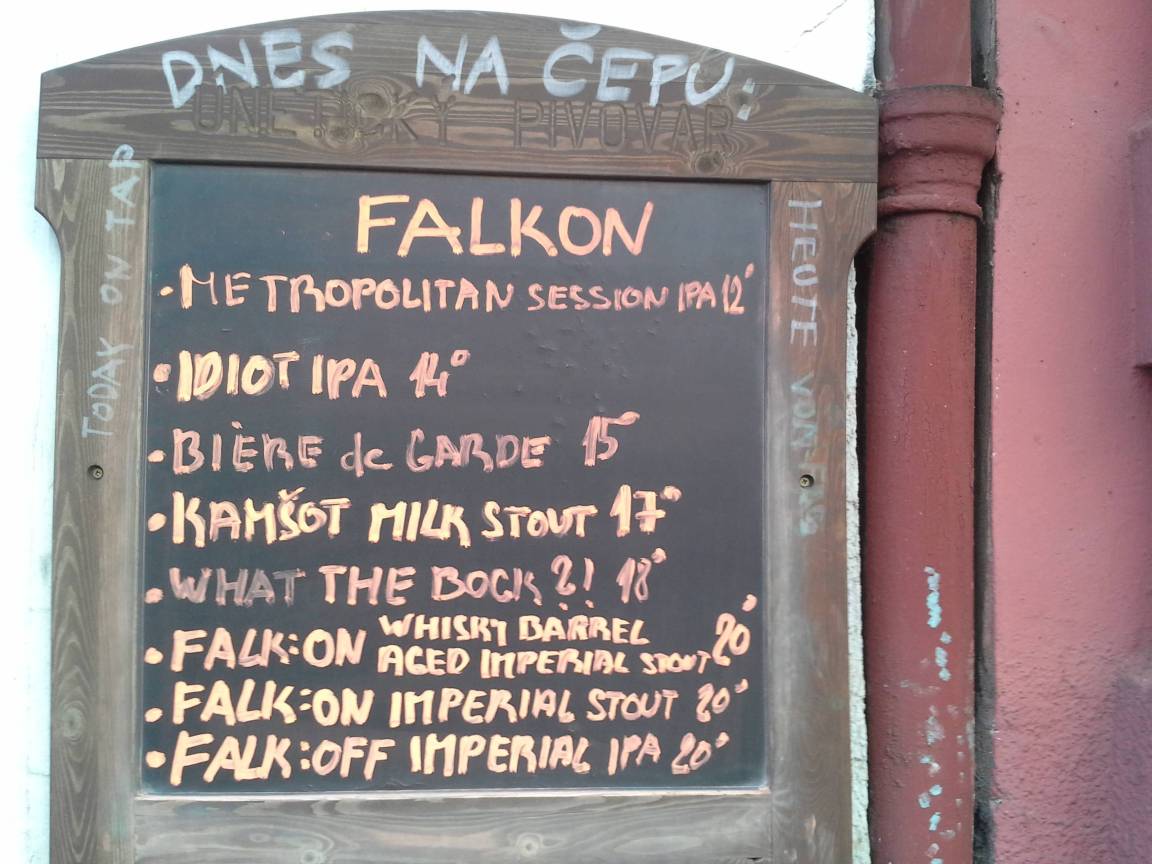 DNES NA ČEPU:
ÚNĚTICKÝ PIVOVAR
TODAY ON TAP
HEUTE VOM FASS
FALKON
• METROPOLITAN SESSION IPA 12°
• IDIOT IPA 14°
• BIÈRE de GARDE 15°
• KAMŠOT MILK STOUT 17°
• WHAT THE BOCK?! 18°
• FALK:ON WHISKY BARREL
AGED IMPERIAL STOUT 20°
• FALK:ON IMPERIAL STOUT 20°
• FALK:OFF IMPERIAL IPA 20°